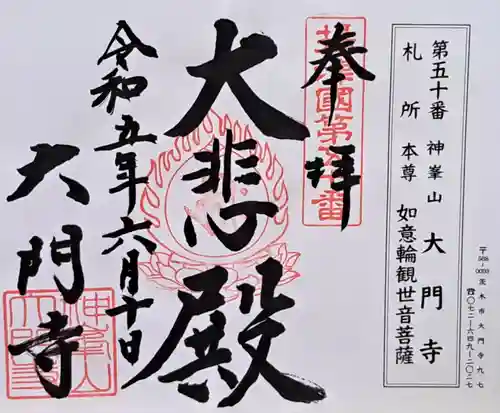 第五十番 神峯山 大門寺
札所 本尊 如意輪観世音菩薩
〒568-0093 茨木市大門寺九七
☎〇七二-六四九-二〇二七
奉拝
大悲殿
令和五年六月十日
大門寺